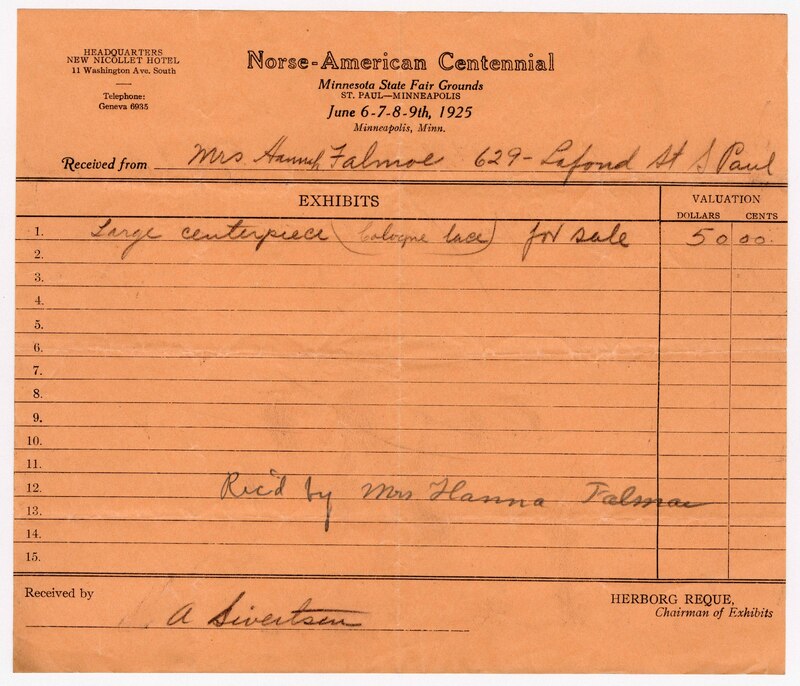 HEADQUARTERS
NEW NICOLLET HOTEL
11 Washington Ave. South
Telephone:
Geneva 6935
Norse-American Centennial
Minnesota State Fair Grounds
ST. PAUL—MINNEAPOLIS
June 6-7-8-9th, 1925
Minneapolis, Minn.
Received from Mrs Hannah Falmoe 629- Lafond St S Paul
EXHIBITS
VALUATION
DOLLARS CENTS
1. Large centerpiece (Cologne lace) for sale 50 00.
2.
3.
4.
5.
6.
7.
8.
9.
10.
11.
12. Rec'd by Mrs Hanna Falmoe
13.
14.
15.
Received by
A Sivertsen
HERBORG REQUE,
Chairman of Exhibits